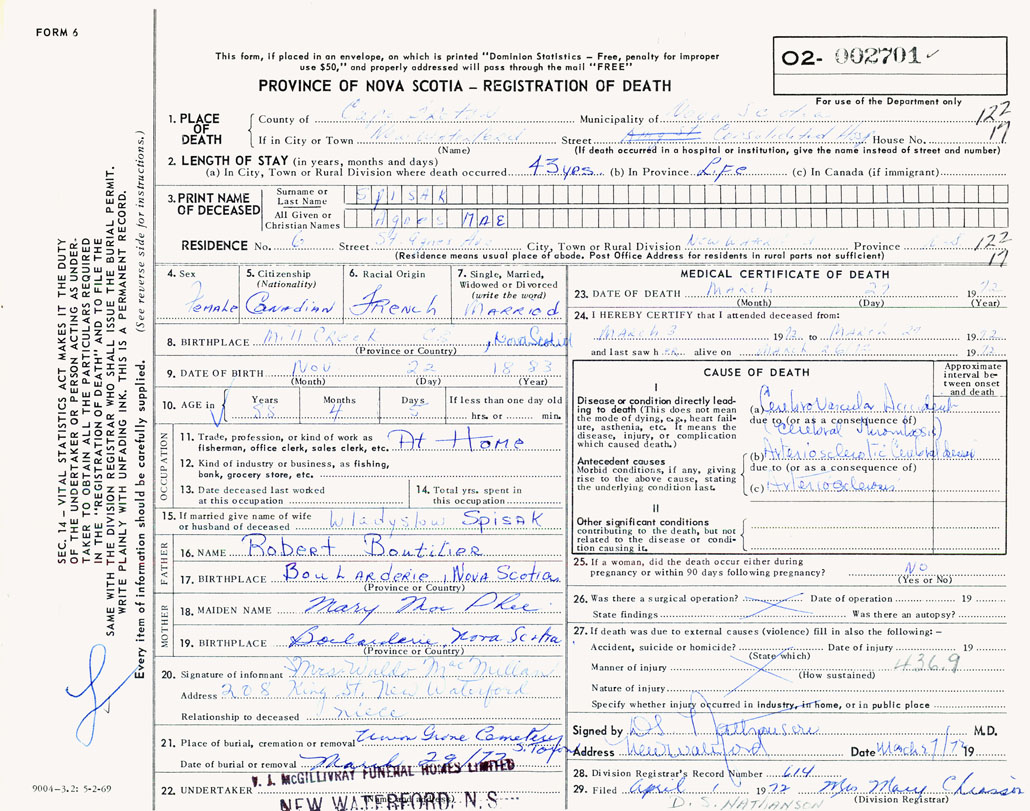 FORM 6
02- 002701
This form, if placed in an envelope, on which is printed "Dominion Statistics – Free, penalty for improper
use $50," and properly addressed will pass through the mail "FREE"
PROVINCE OF NOVA SCOTIA – REGISTRATION OF DEATH
For use of the Department only
1. PLACE OF DEATH
County of Cape Breton Municipality of Nova Scotia 122
If in City or Town New Waterford Street Consolidated Hosp House No. 17
(Name) (If death occurred in a hospital or institution, give the name instead of street and number)
2. LENGTH OF STAY (in years, months and days)
(a) In City, Town or Rural Division where death occurred 43 yrs (b) In Province Life (c) In Canada (if immigrant)
3. PRINT NAME OF DECEASED
Surname or Last Name SPISAK
All Given or Christian Names Agnes MAE
RESIDENCE No. 6 Street St Agnes Ave City, Town or Rural Division New Waterf Province N.S. 122
(Residence means usual place of abode. Post Office Address for residents in rural parts not sufficient) 17
4. Sex Female
5. Citizenship (Nationality) Canadian
6. Racial Origin French
7. Single, Married, Widowed or Divorced (write the word) Married
8. BIRTHPLACE Mill Creek C B, Nova Scotia
(Province or Country)
9. DATE OF BIRTH Nov 22 1883
(Month) (Day) (Year)
10. AGE in Years 88 Months 4 Days 5 If less than one day old
hrs. or min.
OCCUPATION
11. Trade, profession, or kind of work as
fisherman, office clerk, sales clerk, etc. At Home
12. Kind of industry or business, as fishing,
bank, grocery store, etc.
13. Date deceased last worked
at this occupation
14. Total yrs. spent in
this occupation
15. If married give name of wife
or husband of deceased Wladyslow Spisak
FATHER
16. NAME Robert Boutilier
17. BIRTHPLACE Boularderie, Nova Scotia
(Province or Country)
MOTHER
18. MAIDEN NAME Mary Mac Phee
19. BIRTHPLACE Boularderie, Nova Scotia
(Province or Country)
20. Signature of informant Mrs. Waldo MacMillan
Address 228 King St, New Waterford
Relationship to deceased niece
21. Place of burial, cremation or removal Union Grove Cemetery
Date of burial or removal March 29/72
22. UNDERTAKER V. J. McGILLIVRAY FUNERAL HOMES LIMITED
NEW WATERFORD, N.S.
9004–3.2: 5-2-69
MEDICAL CERTIFICATE OF DEATH
23. DATE OF DEATH March 27 1972
(Month) (Day) (Year)
24. I HEREBY CERTIFY that I attended deceased from:
March 3 1972 to March 27 1972
and last saw her alive on March 26 1972
CAUSE OF DEATH
Approximate interval between onset and death
I
Disease or condition directly leading to death (This does not
mean the mode of dying, e.g., heart failure, asthenia, etc. It means the
disease, injury, or complication
which caused death.)
(a) Cerebro Vascular Accident
due to (or as a consequence of)
(Cerebral Thrombosis)
Antecedent causes
Morbid conditions, if any, giving
rise to the above cause, stating
the underlying condition last.
(b) Arteriosclerotic Cerebral
due to (or as a consequence of)
(c) Arteriosclerosis
II
Other significant conditions
contributing to the death, but not
related to the disease or condition causing it.
25. If a woman, did the death occur either during
pregnancy or within 90 days following pregnancy? No
(Yes or No)
26. Was there a surgical operation? Date of operation 19
State findings Was there an autopsy?
27. If death was due to external causes (violence) fill in also the following: –
Accident, suicide or homicide? Date of injury 19
(State which)
Manner of injury 436.9
(How sustained)
Nature of injury
Specify whether injury occurred in industry, in home, or in public place
Signed by D S Nathanson M.D.
Address New Waterford Date March 27/72 19
28. Division Registrar's Record Number 614
29. Filed April 1 1972 Mrs Mary
(Division Registrar)
D. S. NATHANSON
SEC. 14 – VITAL STATISTICS ACT MAKES IT THE DUTY
OF THE UNDERTAKER OR PERSON ACTING AS UNDER-
TAKER TO OBTAIN ALL THE PARTICULARS REQUIRED
IN THE "REGISTRATION OF DEATH" AND TO FILE THE
SAME WITH THE DIVISION REGISTRAR WHO SHALL ISSUE THE BURIAL PERMIT.
WRITE PLAINLY WITH UNFADING INK. THIS IS A PERMANENT RECORD.
Every item of information should be carefully supplied. (See reverse side for instructions.)